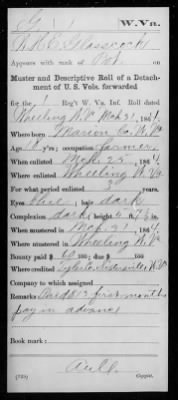 G, 1 W. Va.
R.H.C. Glasscock
Appears with rank of Pvt. on
Muster and Descriptive Roll of a Detach-
ment of U. S. Vols. forwarded
for the 1 Reg't W. Va. Inf. Roll dated
Wheeling W. Va. Mch 31, 1864.
Where born Marion Co. W. Va.
Age 18 y'rs; occupation farmer
When enlisted Mch. 25, 1864.
Where enlisted Wheeling W. Va.
For what period enlisted 3 years.
Eyes blue; hair dark
Complexion dark; height ft. in.
When mustered in Mch. 31, 1864.
Where mustered in Wheeling W. Va.
Bounty paid $ 60 100; due $ 100
Where credited W. Va.
Company to which assigned
Remarks: Paid $13 first month's
pay in advance
Book mark:
Copyist.